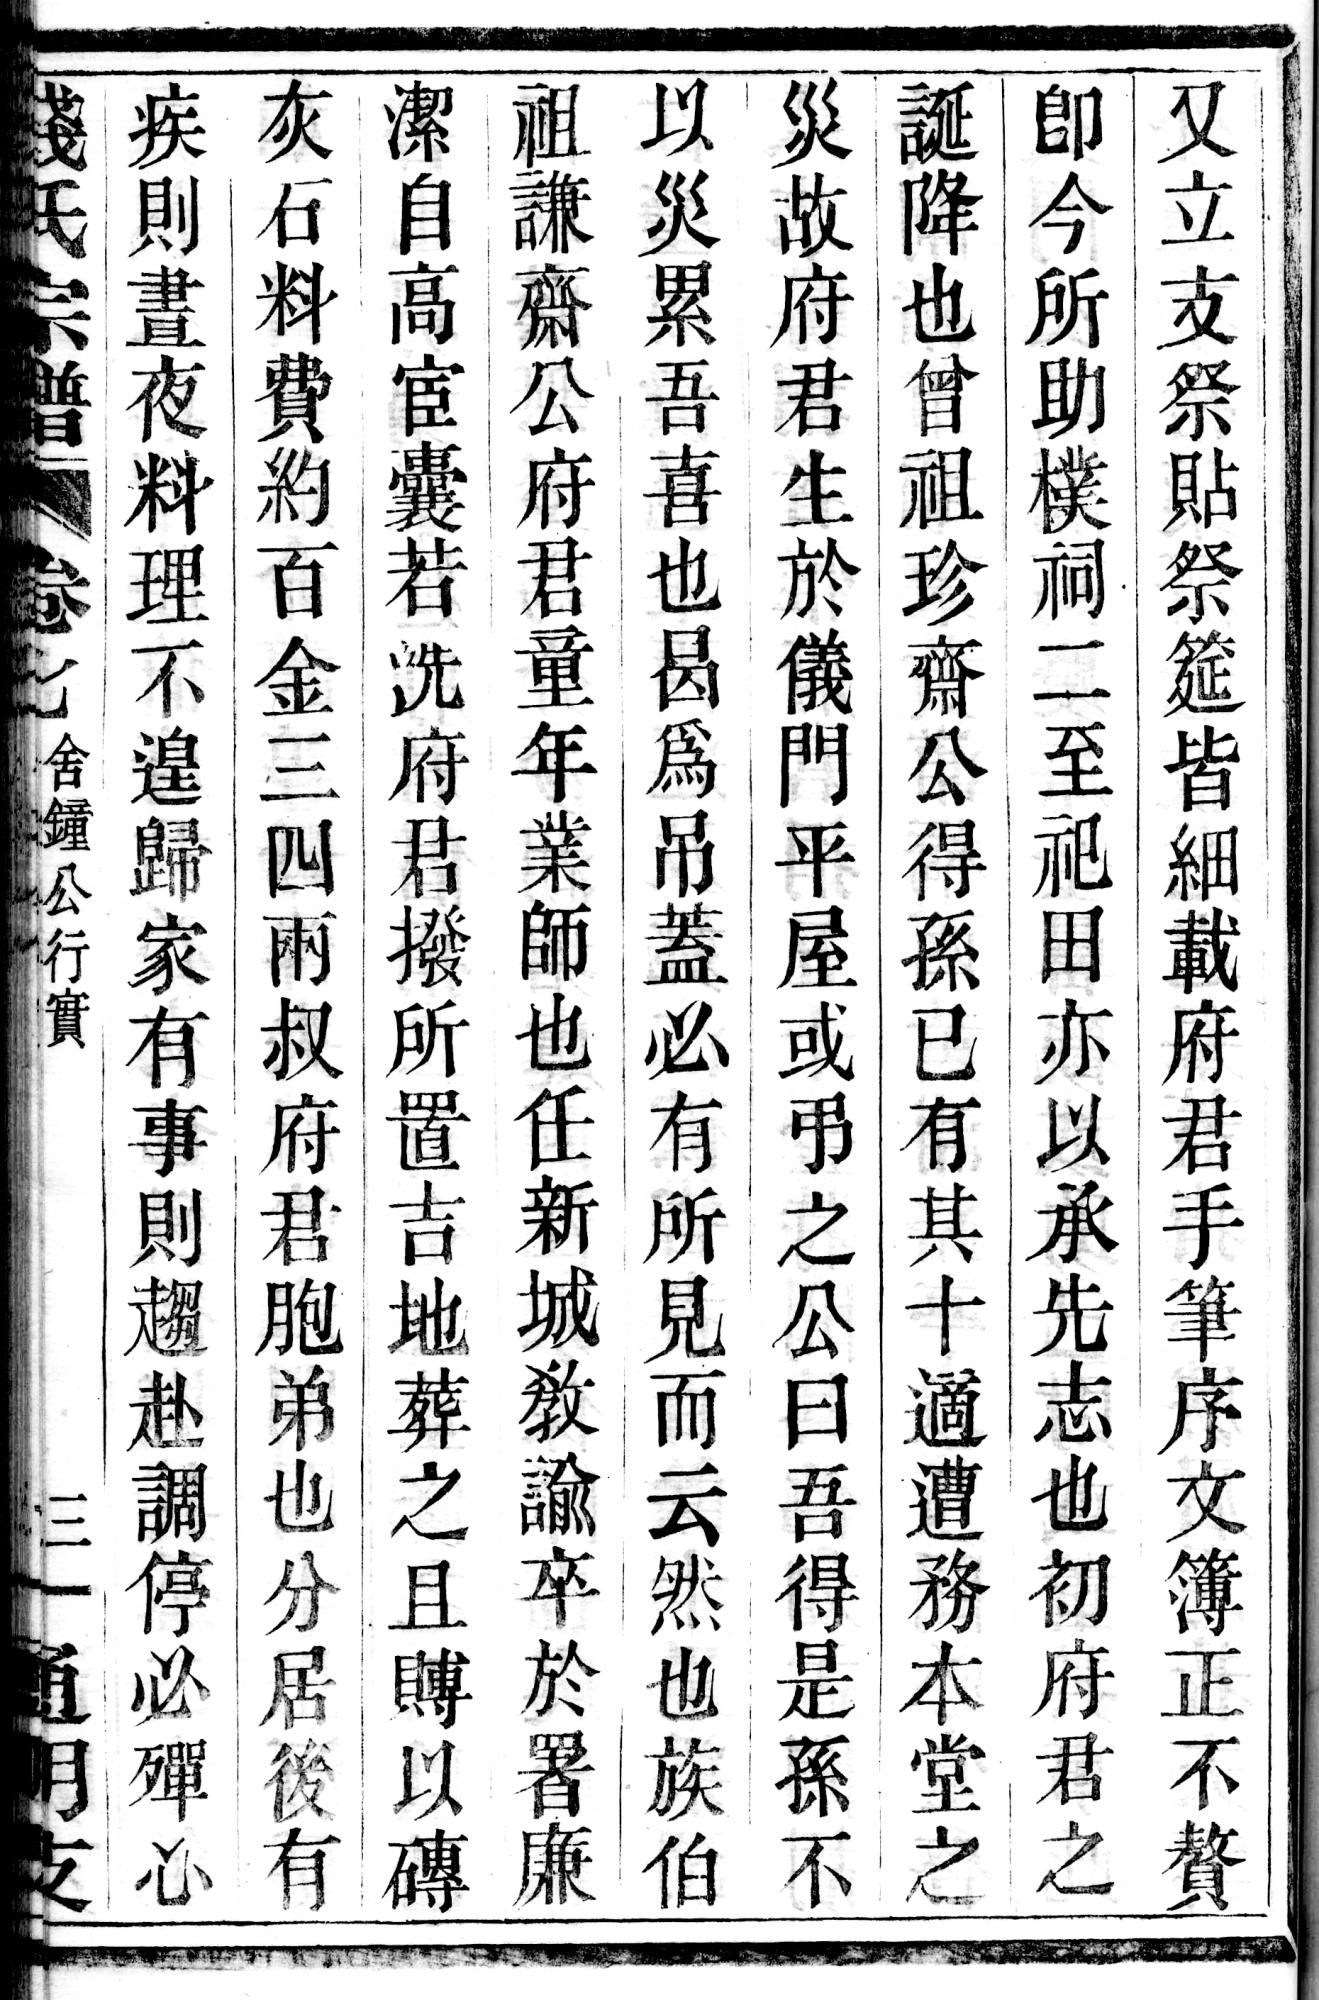 又立支祭貼祭筵皆細載府君手筆序文簿正不贅
卽今所助樸祠二至祀田亦以承先志也初府君之
誕降也曾祖珍齋公得孫已有其十適遭務本堂之
災故府君生於儀門平屋或弔之公曰吾得是孫不
以災累吾喜也曷爲吊蓋必有所見而云然也族伯
祖謙齋公府君童年業師也任新城敎諭卒於署廉
潔自高宦囊若洗府君撥所置吉地葬之且賻以磚
灰石料費約百金三四兩叔府君胞弟也分居後有
疾則晝夜料理不遑歸家有事則趨赴調停必殫心
錢氏宗譜 卷七 舍鐘公行實 三一 通明支